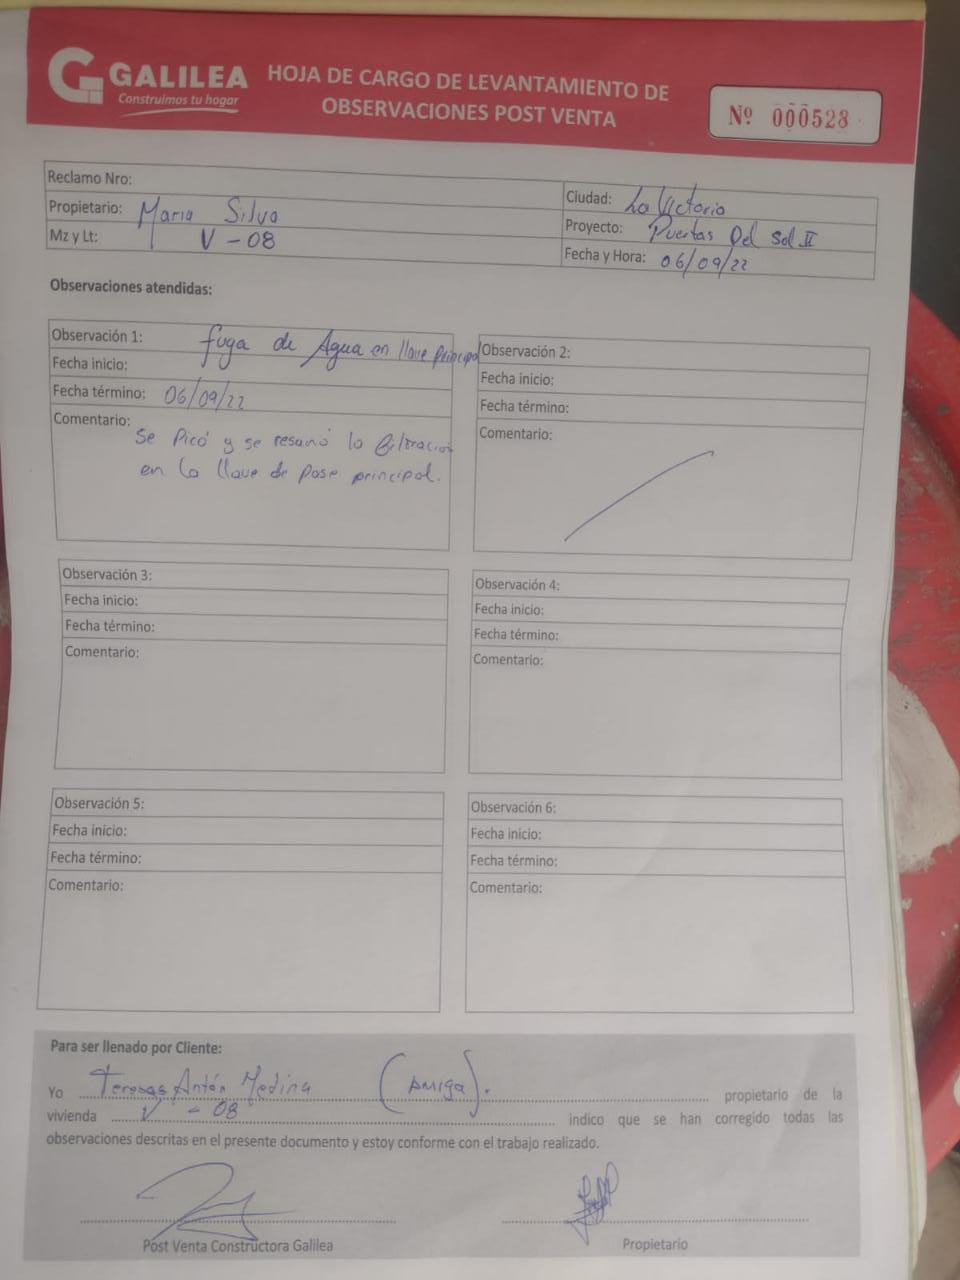 GALILEA
Construimos tu hogar
HOJA DE CARGO DE LEVANTAMIENTO DE
OBSERVACIONES POST VENTA
Nº 000528
Reclamo Nro:
Propietario: Maria Silva
Mz y Lt: V - 08
Ciudad: La Victoria
Proyecto: Puertas Del Sol II
Fecha y Hora: 06/09/22
Observaciones atendidas:
Observación 1: fuga de Agua en llave principal
Fecha inicio:
Fecha término: 06/09/22
Comentario: Se Picó y se resanó la filtracion
en la llave de pase principal.
Observación 2:
Fecha inicio:
Fecha término:
Comentario:
Observación 3:
Fecha inicio:
Fecha término:
Comentario:
Observación 4:
Fecha inicio:
Fecha término:
Comentario:
Observación 5:
Fecha inicio:
Fecha término:
Comentario:
Observación 6:
Fecha inicio:
Fecha término:
Comentario:
Para ser llenado por Cliente:
Yo Teresas Antón Medina (Amiga). propietario de la
vivienda V - 08 indico que se han corregido todas las
observaciones descritas en el presente documento y estoy conforme con el trabajo realizado.
Post Venta Constructora Galilea
Propietario